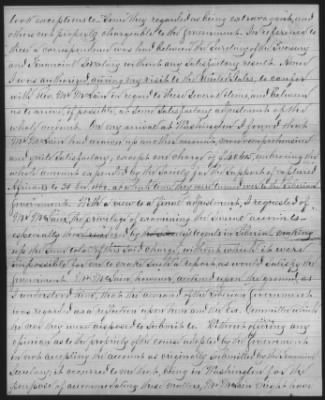 took exceptions to items they regarded as being extravagant, and
others not properly chargeable to the Government. In reference to
these a correspondence was had between the Secretary of the Treasury
and Financial Secretary without any satisfactory result. Hence
I was authorized during my visit to the United States, to confer
with Rev. Mr McLain in regard to these several items, and between
us to arrive, if possible, at some satisfactory adjustment of this
whole account. On my arrival at Washington I found that
Mr McLain had drawn up another account, more comprehensive
and quite satisfactory, except one charge of embracing the
whole amount expended by the Society for the support of recaptured
Africans to 1860, at which time they were turned over to the Liberian
Government. With a view to a final adjustment, I requested of
Mr McLain, the privilege of examining the several accounts
especially those by agents in Liberia, making
up the sum total of this said charge, without which it were
impossible for me to make such a report as would satisfy the
Government. Mr McLain however, acted upon the ground, as
I understood him, that the demand of the Liberian Government
was regarded as a reflection upon him and the Ex. Committee which
he nor they were disposed to submit to. Without offering any
opinion as to the propriety of the course adopted by the Government
in not accepting the account as originally submitted by the Financial
Secretary, it occurred to me that, being in Washington for the
purpose of accommodating these matters, Mr McLain might have